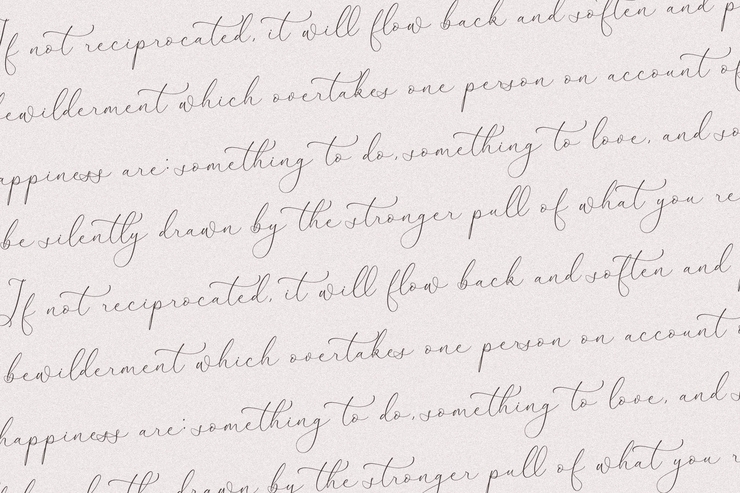 If not reciprocated, it will flow back and soften and p
bewilderment which overtakes one person on account of
appiness are: something to do, something to love, and so
be silently drawn by the stronger pull of what you re
If not reciprocated, it will flow back and soften and
bewilderment which overtakes one person on account
happiness are: something to do, something to love, and s
drawn by the stronger pull of what you r